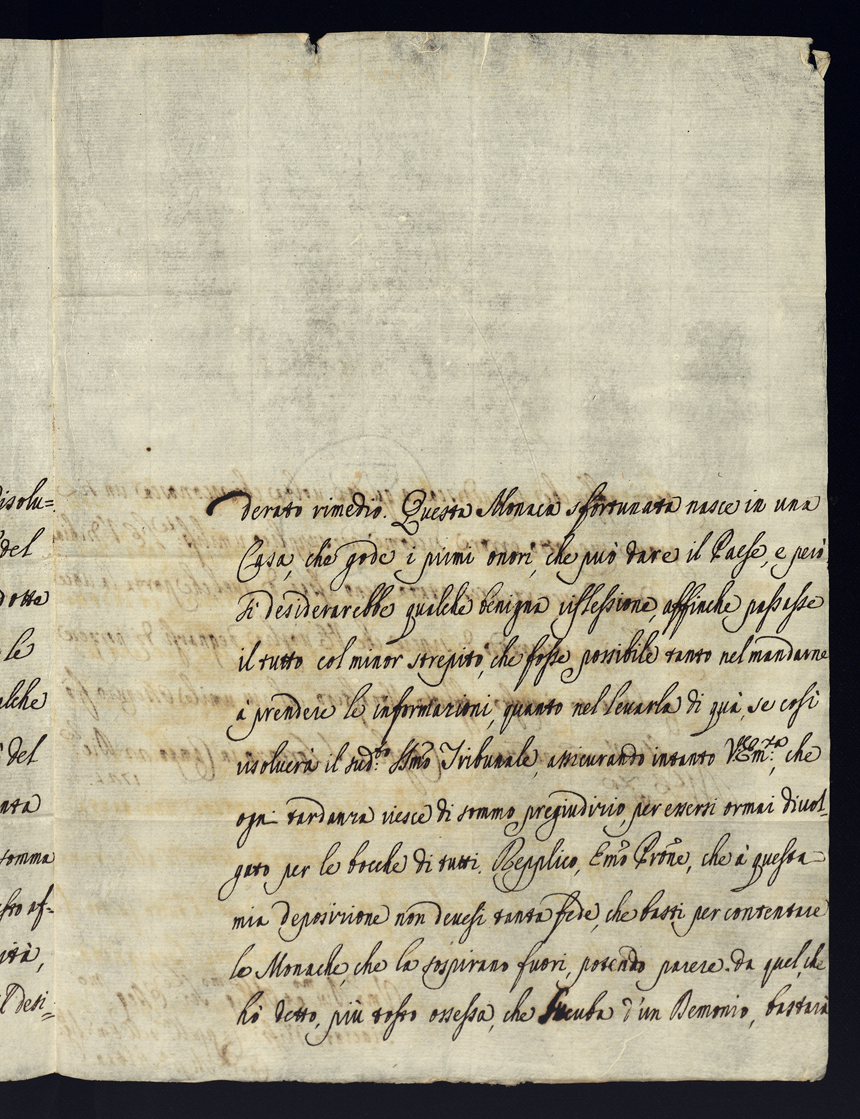 disolu=
del
dotte
le
alche
del
ata
somma
sto af=
ità,
l desi=
derato rimedio. Questa Monaca sfortunata nasce in una
Casa, che gode i primi onori, che può dare il Paese, e però
si desiderarebbe qualche benigna riflessione, affinche passasse
il tutto col minor strepito, che fosse possibile tanto nel mandarne
à prendere le informazioni, quanto nel levarla di quà, se così
risolverà il sud.to Smo Tribunale, assicurando intanto V. Em.za, che
ogni tardanza riesce di sommo pregiudizio per essersi ormai divol=
gato per le bocche di tutti. Repplico, Emo Prone, che à questa
mia deposizione non devesi tanta fede, che basti per contentare
le Monache, che la sospirano fuori, potendo parere da quel, che
hò detto, più tosto ossessa, che Sucuba d'un Demonio, bastarà